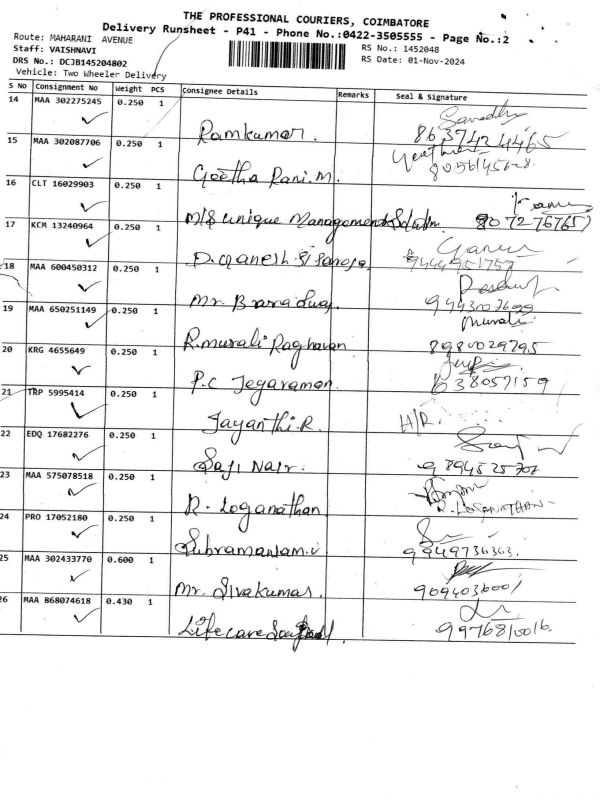 THE PROFESSIONAL COURIERS, COIMBATORE
Delivery Runsheet - P41 - Phone No.:0422-3505555 - Page No.:2
Route: MAHARANI AVENUE
Staff: VAISHNAVI
RS No.: 1452048
DRS No.: DCJB145204802
RS Date: 01-Nov-2024
Vehicle: Two Wheeler Delivery
S No Consignment No Weight PCS Consignee Details Remarks Seal & Signature
14 MAA 302275245 0.250 1
Ramkumar. 8637424465
15 MAA 302087706 0.250 1
Geetha Rani.M. 8056145628.
16 CLT 16029903 0.250 1
M/S unique Management 8072276765
17 KCM 13240964 0.250 1
D.Ganesh 9444951757
18 MAA 600450312 0.250 1
Mr. 9443007699
19 MAA 650251149 0.250 1
Murali
R.Murali Raghavan 8980029795
20 KRG 4655649 0.250 1
P.C Jegaraman 638057159
21 TRP 5995414 0.250 1
Jayanthi.R. H/R.
22 EDQ 17682276 0.250 1
Saji Nair.
23 MAA 575078518 0.250 1
R. Loganathan R. LOGANATHAN
24 PRO 17052180 0.250 1
Subramaniam.v 9949736363.
25 MAA 302433770 0.600 1
Mr. Sivakumar. 9094036001
26 MAA 868074618 0.430 1
Lifecare 9976810016.